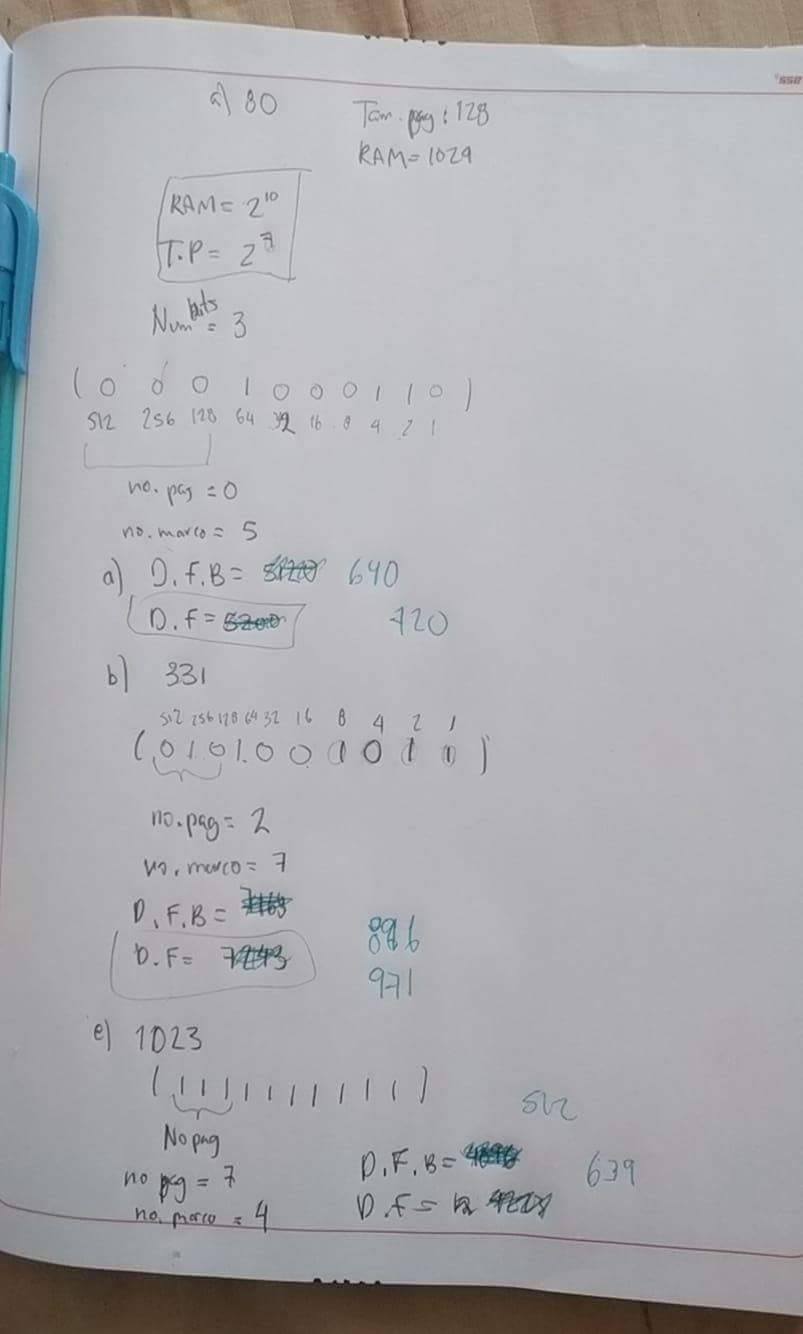 a) 80 Tam. pag: 128
RAM= 1024
RAM= 2^10
T.P= 2^7
Num bits = 3
(0 0 0 1 0 0 0 1 1 0)
512 256 128 64 32 16 8 4 2 1
no. pag = 0
no. marco = 5
a) D.F.B= 640
D.F= 720
b) 331
512 256 128 64 32 16 8 4 2 1
(0 1 0 1 0 0 1 0 1 1)
no. pag= 2
no. marco= 7
D.F.B= 896
D.F= 971
e) 1023
(1 1 1 1 1 1 1 1 1 1) 512
No pag
no pag = 7
no. marco = 4
D.F.B= 639
D.F=